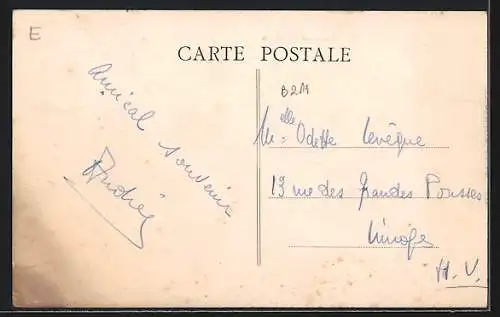 E
CARTE POSTALE
B211
Amical souvenir
Andrée
Mlle Odette Levêque
13 rue des Grandes Pousses
Limoges
H.V.